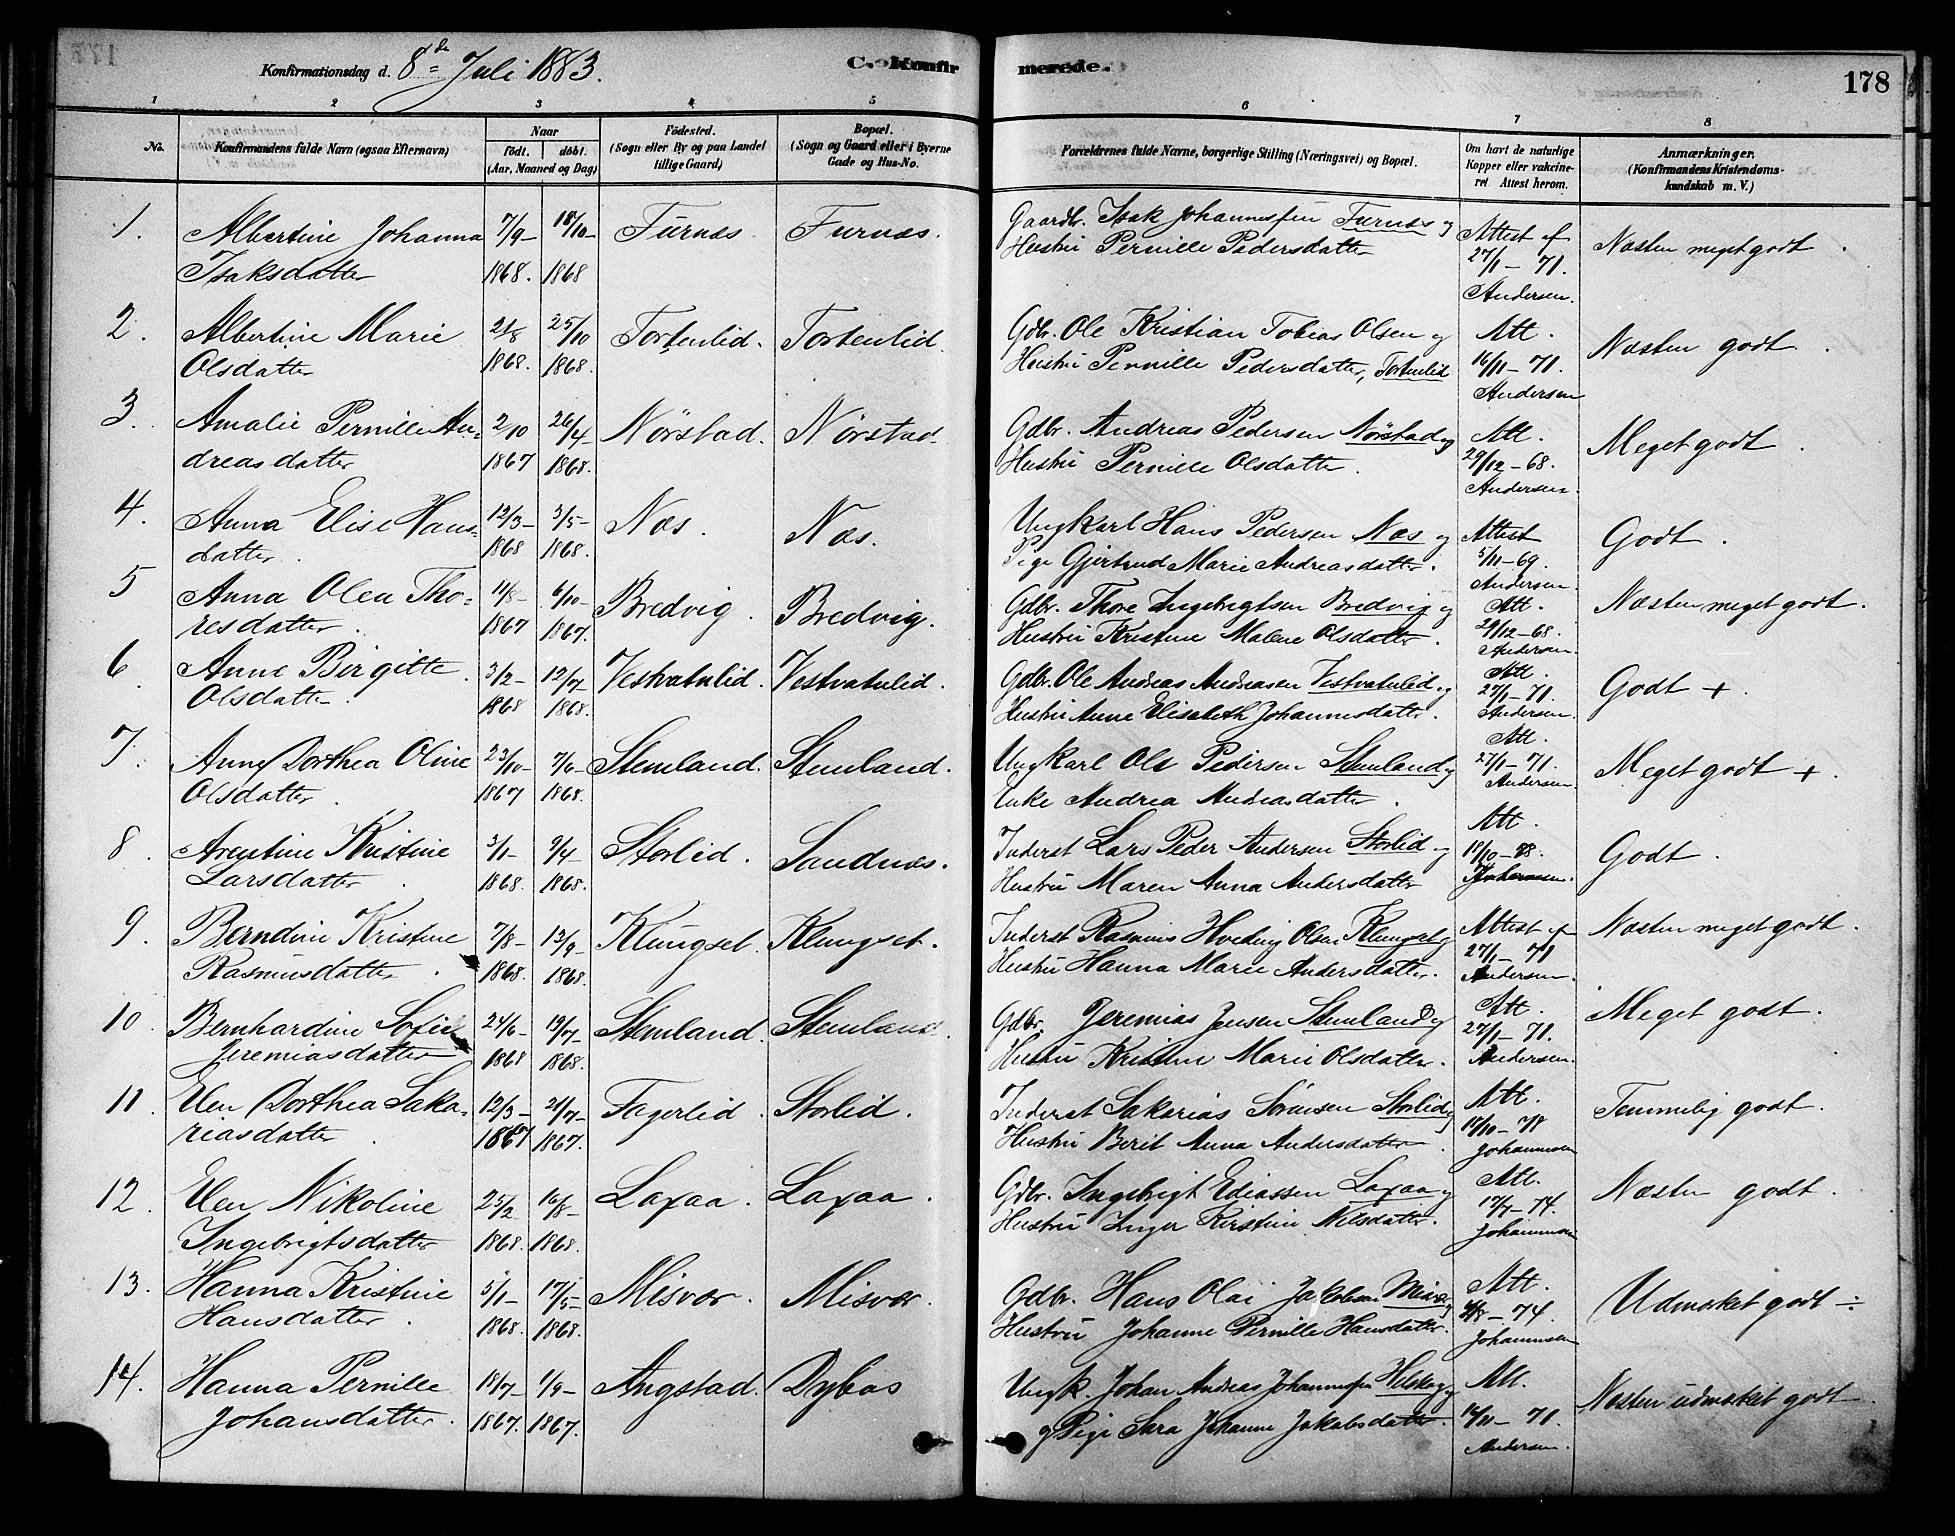 Konfirmationsdag d. 8de Juli 1883.
C. Konfirmerede.
178
1 2 3 4 5 6 7 8
No.
Konfirmandens fulde Navn (ogsaa Efternavn)
Naar
født. døbt.
(Aar, Maaned og Dag)
Fødested.
(Sogn eller By og paa Landet
tillige Gaard,)
Bopæl.
(Sogn og Gaard eller i Byerne
Gade og Hus-No.
Forældrenes fulde Navne, borgerlige Stilling (Næringsvei) og Bopæl.
Om havt de naturlige
Kopper eller vakcine-
ret Attest herom.
Anmærkninger,
(Konfirmandens Kristendoms-
kundskab m. V.)
1. Albertine Johanna 7/9- 18/10- Furnæs Furnæs. Gaardbr. Isak Johannessen Furnæs og Attest af Næsten meget godt.
Isaksdatter 1868. 1868 Hustru Pernille Pedersdatter 27/1- 71.
Andersen.
2. Albertine Marie 2/8 25/10 Tortenlid. Tortenlid. Gdbr. Ole Kristian Tobias Olsen og Att. Næsten godt.
Olsdatter 1868. 1868. Hustru Pernille Pedersdatter, Tortenlid 16/11- 71.
Andersen
3. Amalie Pernille An- 2/10 26/4- Nörstad. Nörstad. Gdbr. Andreas Pedersen Nörstad og Att. Meget godt.
dreasdatter 1867 1868. Hustru Pernille Olsdatter. 29/12-68.
Andersen.
4. Anna Elise Hans- 12/3- 3/5- Næs. Næs. Ungkarl Hans Pedersen Næs og Attest Godt.
datter. 1868 1868. Pige Gjertrud Marie Andreasdatter. 5/11-69.
Andersen
5 Anna Olea Tho- 11/8- 6/10- Bredvig. Bredvig. Gdbr. Thore Ingebrigtsen Bredvig og Att. Næsten meget godt.
resdatter. 1867 1867. Hustru Kristine Malene Olsdatter. 29/12-68.
Andersen
6. Anne Birgitte 3/2- 12/7- Vestvatnlid. Vestvatnlid. Gdbr. Ole Andreas Andreasen Vestvatnlid og Att. Godt +.
Olsdatter. 1868 1868. Hustru Anne Elisabeth Johannesdatter. 27/1-71.
Andersen.
7. Anne Dorthea Oline 23/10- Stemland. Stemland. Ungkarl Ole Pedersen Stemland og Att. Meget godt +.
Olsdatter. 1867 1868. Enke Andrea Andreasdatter. 27/1-71.
Andersen
8. Arentine Kristine 3/1- 9/4 Storlid. Sandnæs. Inderst Lars Peder Andersen Storlid og Att. Godt.
Larsdatter. 1868. 1868. Hustru Maren Anna Andersdatter
Johannesen.
9. Berndine Kristine 7/8- 13/9 Klungset. Klungset. Inderst Rasmus Hveding Olsen Klungset og Attest af Næsten meget godt.
Rasmusdatter. 1868. 1868. Hustru Hanna Marie Andersdatter. 27/1- 71
Andersen
10. Bernhardine Sofie 24/6- 19/7- Stemland. Stemland. Gdbr. Jeremias Jensen Stemland og Att. Meget godt.
Jeremiasdatter 1868 1868. Hustru Kristine Marie Olsdatter. 27/1- 71.
Andersen.
11. Elen Dorthea Saka- 12/3- 21/7- Fagerlid. Storlid. Inderst Sakarias Sörensen Storlid og Att. Temmelig godt.
riasdatter. 1867 1867. Hustru Berit Anna Andersdatter
Johannesen
12. Elen Nikoline 25/2 16/8- Laxaa. Laxaa. Gdbr. Ingebrigt Ediassen Laxaa og Att. Næsten godt.
Ingebrigtsdatter 1868. 1868. Hustru Inger Kirstine Nilsdatter. 17/7-74.
Johannesen
13. Hanna Kristine 5/1- 17/5- Misvær. Misvær. Gdbr. Hans Olai Jakobsen Misvær og Att. Udmærket godt ÷
Hansdatter. 1868. 1868. Hustru Johanne Pernille Hansdatter. - 74.
Johannesen
14. Hanna Pernille 18/7- 1/9- Angstad. Dybos Ungk. Johan Andreas Johannessen Att. Næsten udmærket godt.
Johansdatter. 1867. 1867. og Pige Sara Johanne Jakobsdatter. 14/11- 71.
Andersen.